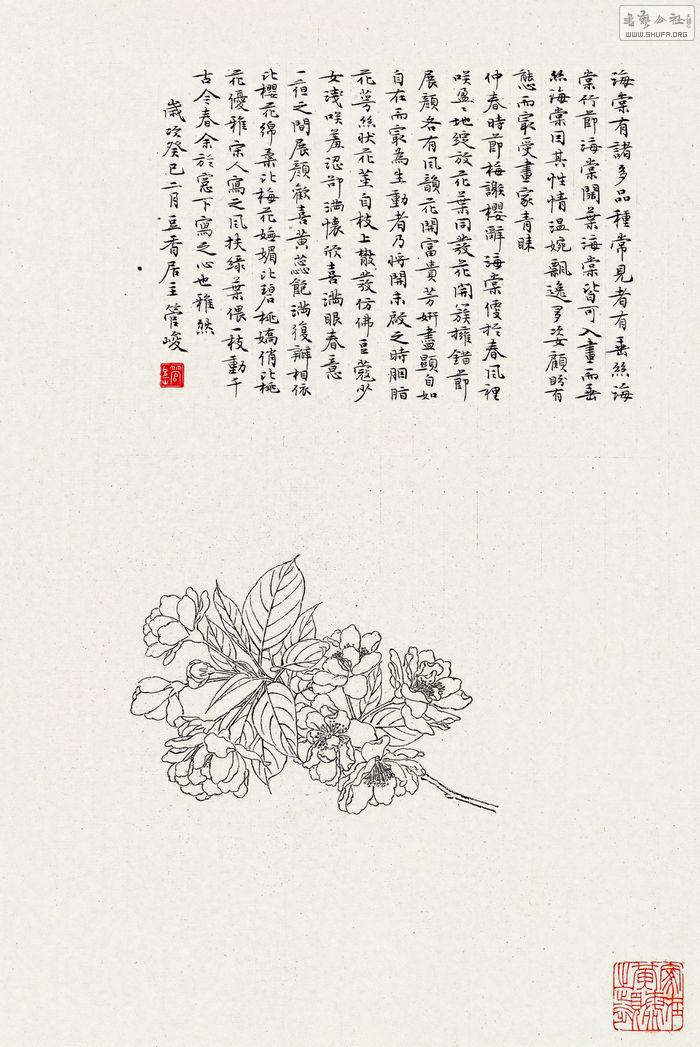 海棠有諸多品種常見者有垂絲海
棠行節海棠闊葉海棠皆可入畫而垂
絲海棠因其性情溫婉飄逸多姿顧盼有
態而最受畫家青睐
仲春時節梅謝櫻辭海棠便於春風裡
咲盈々地綻放花葉同發花開簇擁錯節
展顏各有風韻花開富貴芳妍盡顯自如
自在而最為生動者乃將開未啟之時胭脂
花萼絲狀花莖自枝上散發仿佛豆蔻少
女淺咲羞澀卻滿懷欣喜滿眼春意
一夜之間展顏歡喜黃蕊飽滿復瓣相依
比櫻花綿柔比梅花嫵媚比碧桃嬌俏比桃
花優雅宋人寫之風扶綠葉偎一枝動千
古今春余於窗下寫之心也雅然
歲次癸巳二月豆香居主管峻
WWW.SHUFA.ORG